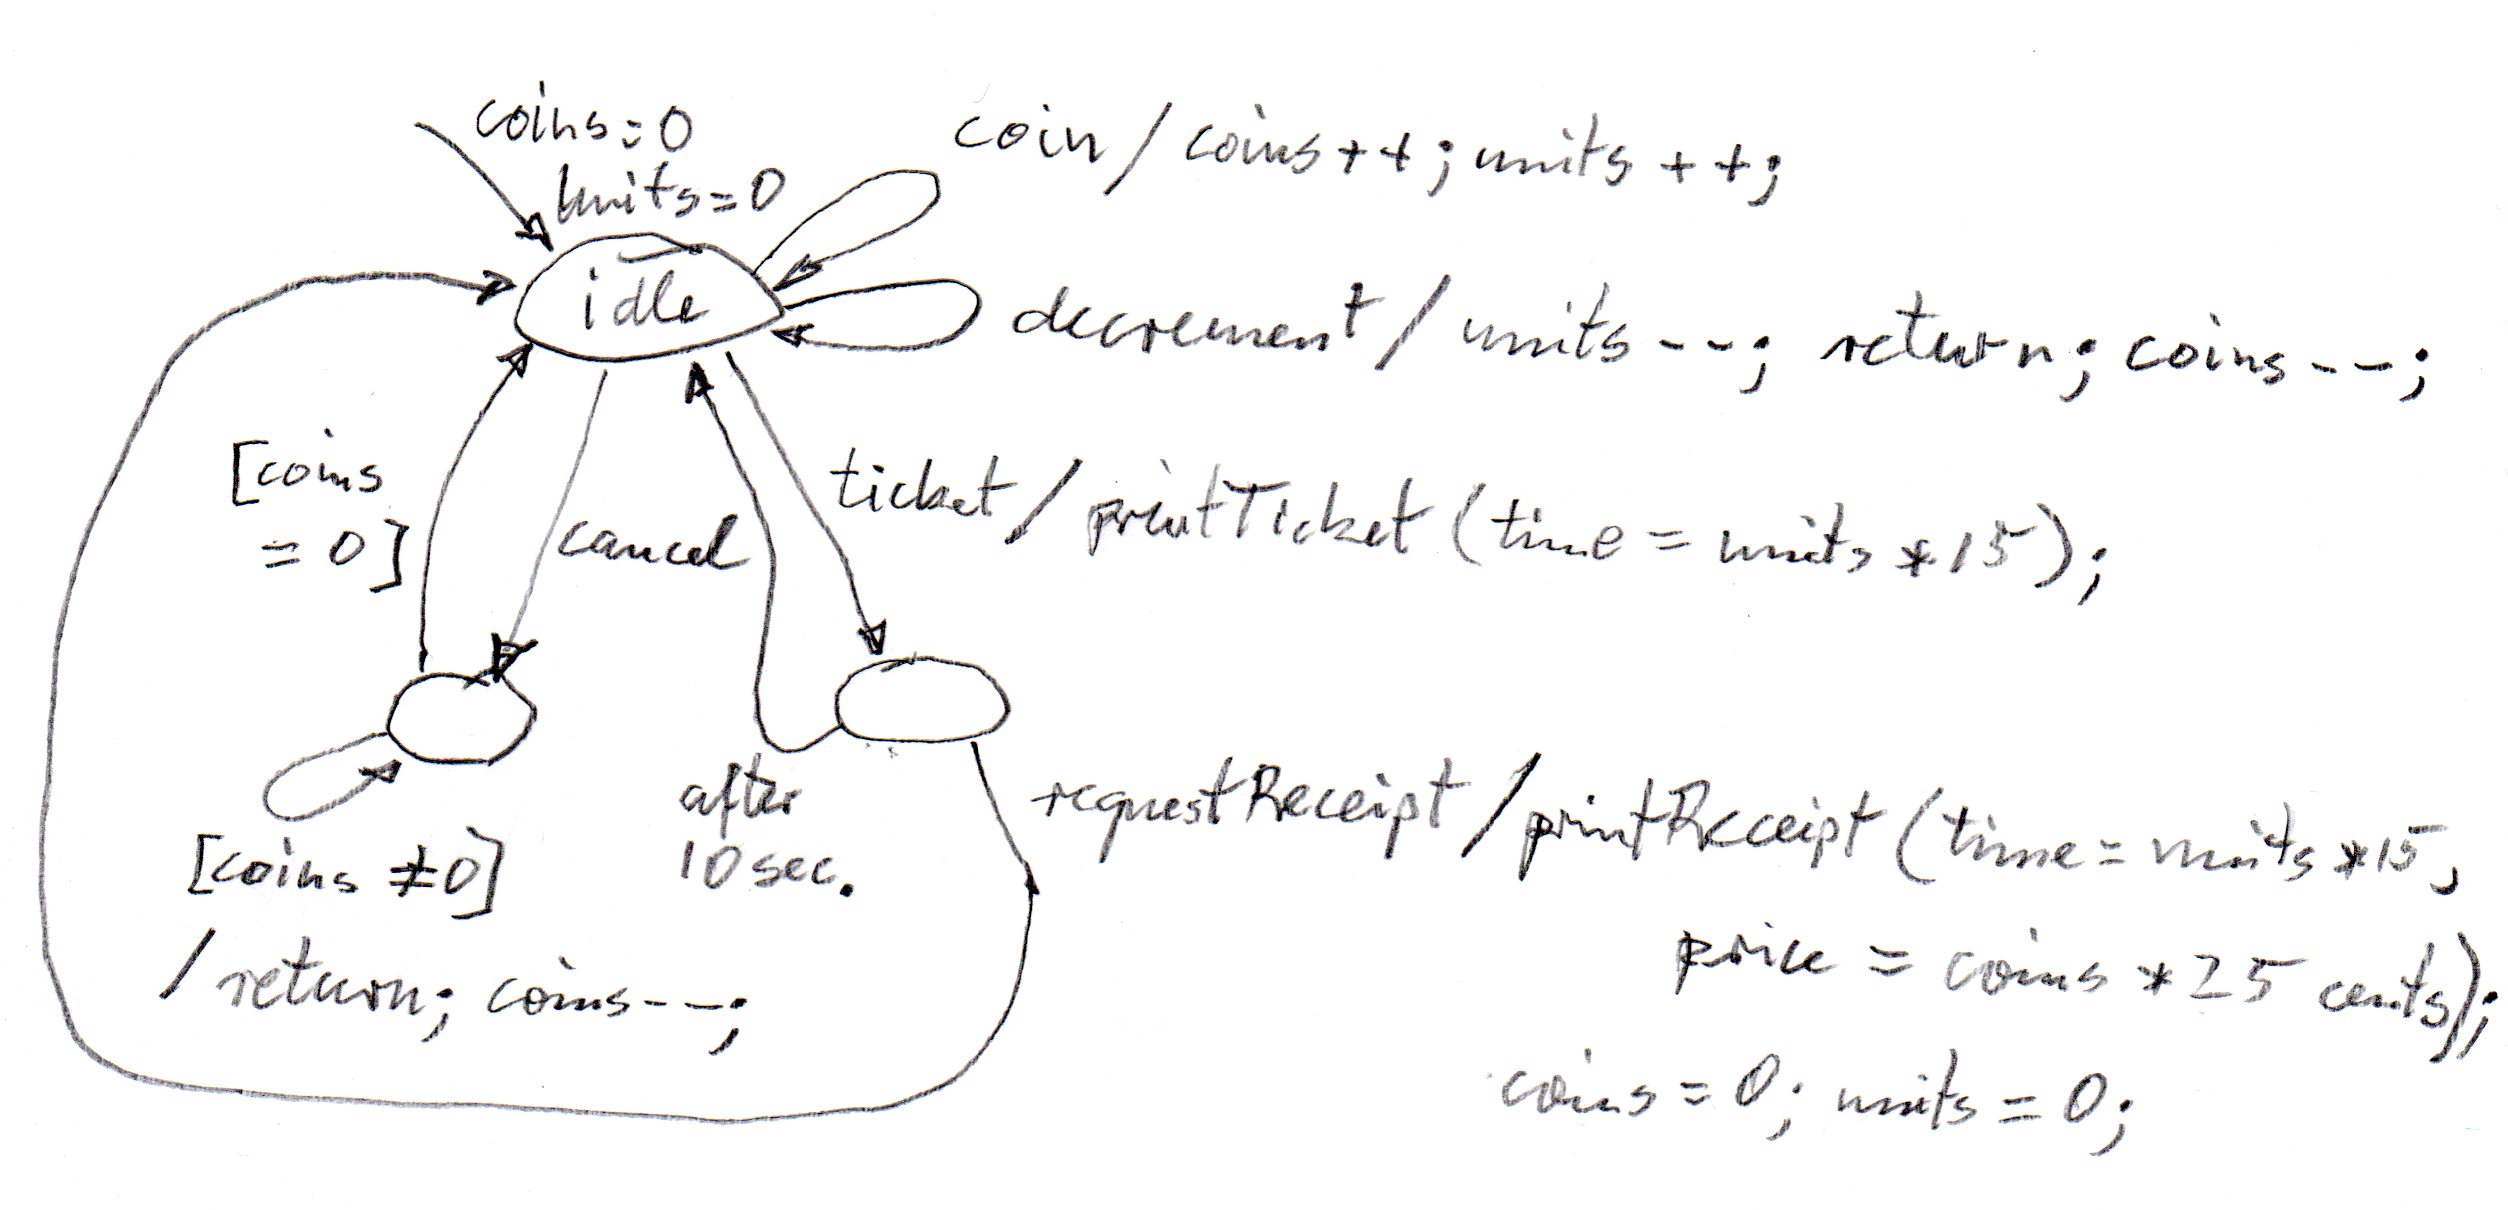 coins=0
units=0
coin / coins++; units++;
idle
decrement / units--; return; coins--;
[coins
=0]
cancel
ticket / printTicket (time = units * 15);
after
10 sec.
requestReceipt / printReceipt (time = units * 15,
price = coins * 25 cents);
coins = 0; units = 0;
[coins ≠0]
/ return; coins--;